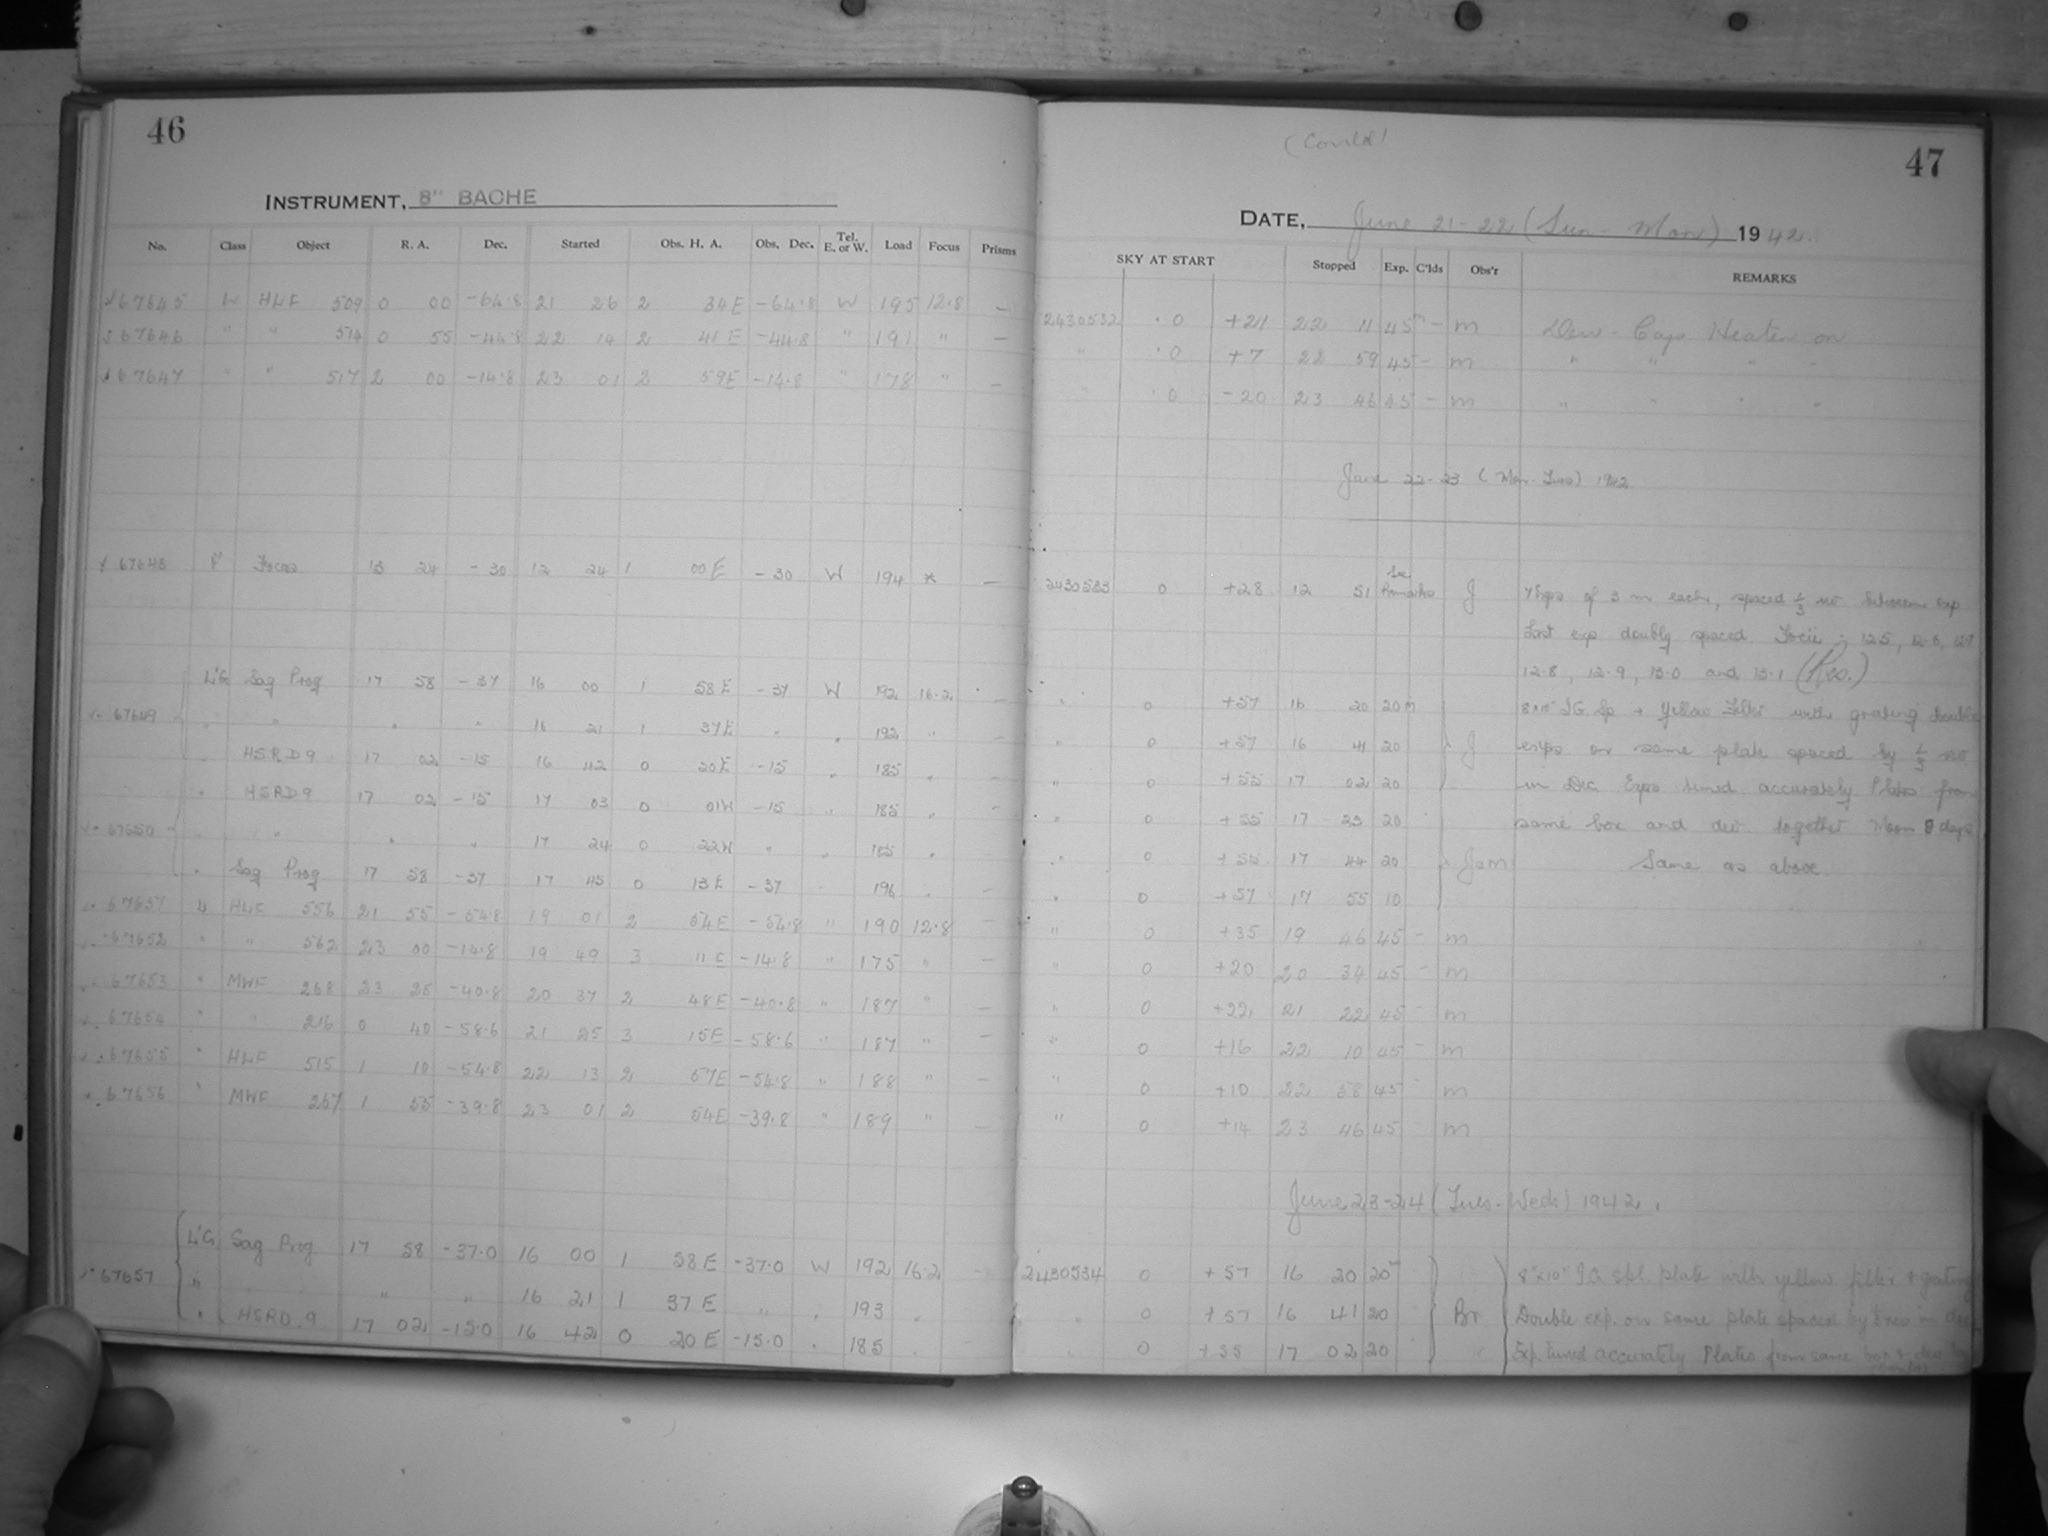 46
INSTRUMENT, 8" BACHE
No. Class Object R. A. Dec. Started Obs. H. A. Obs. Dec. Tel. E. or W. Load Focus Prisms
67645 W HLF 509 0 00 -64.8 21 26 2 34E -64.8 W 195 12.8 —
67646 " " 514 0 55 -44.8 22 14 2 41E -44.8 " 191 " —
67647 " " 517 2 00 -14.8 23 01 2 59E -14.8 " 178 " —
67648 F Focus 13 24 -30 12 24 1 00E -30 W 194 * —
L'G Sag Prog 17 58 -37 16 00 1 58E -37 W 192 16.2 -
67649 " " " " 16 21 1 37E " " 192 " —
" HSRD9 17 02 -15 16 42 0 20E -15 " 185 "
" HSRD9 17 02 -15 17 03 0 01W -15 " 185 " —
67650 " " " " 17 24 0 22W " " 185 "
" Sag Prog 17 58 -37 17 45 0 13E -37 196 —
67651 HLF 556 21 55 -54.8 19 01 2 54E -54.8 " 190 12.8 —
67652 " " 562 23 00 -14.8 19 49 3 11E -14.8 " 175 " —
67653 " MWF 268 23 25 -40.8 20 37 2 48E -40.8 " 187 " —
67654 " " 216 0 40 -58.6 21 25 3 15E -58.6 " 187 " —
67655 " HLF 515 1 10 -54.8 22 13 2 57E -54.8 " 188 " —
67656 " MWF 257 1 55 -39.8 23 01 2 54E -39.8 " 189 " —
L'G Sag Prog 17 58 -37.0 16 00 1 58E -37.0 W 192 16.2
67657 " " " 16 21 1 37E " 193
" HSRD.9 17 02 -15.0 16 42 0 20E -15.0 185
(Contd)
47
DATE, June 21-22 (Sun-Mon) 1942.
SKY AT START Stopped Exp. C'lds Obs'r REMARKS
2430532 0 +21 22 11 45m - m Dew-Cap Heater on
" 0 +7 22 59 45 - m " " " "
" 0 -20 23 46 45 - m " " " "
June 22-23 (Mon-Tues) 1942
2430533 0 +28 12 51 See Remarks J 7 Exps of 3 m each, spaced ⅓ rev between exp
Last exp doubly spaced Focii : 12.5, 12.6, 12.7
12.8, 12.9, 13.0 and 13.1 (Rev.)
" 0 +57 16 20 20m 8x10 IG Sp + Yellow Filter with grating Double
" 0 +57 16 41 20 J exps on same plate spaced by ⅓ rev
" 0 +55 17 02 20 in Dec. Exps timed accurately Plates from
" 0 +55 17 23 20 same box and dev. together Moon 8 days
" 0 17 44 20 Jam Same as above
" 0 +57 17 55 10
" 0 +35 19 46 45 - m
" 0 +20 20 34 45 - m
" 0 +22 21 22 45 - m
" 0 +16 22 10 45 - m
" 0 +10 22 58 45 m
" 0 +14 23 46 45 - m
June 23-24 (Tues-Weds) 1942.
2430534 0 +57 16 20 20m 8"x10" I.G. spl. plate with yellow filter + grating
" 0 +57 16 41 20 Br Double exp. on same plate spaced by ⅓ rev in dec
" 0 +55 17 02 20 Exp. timed accurately Plates from same box + dev